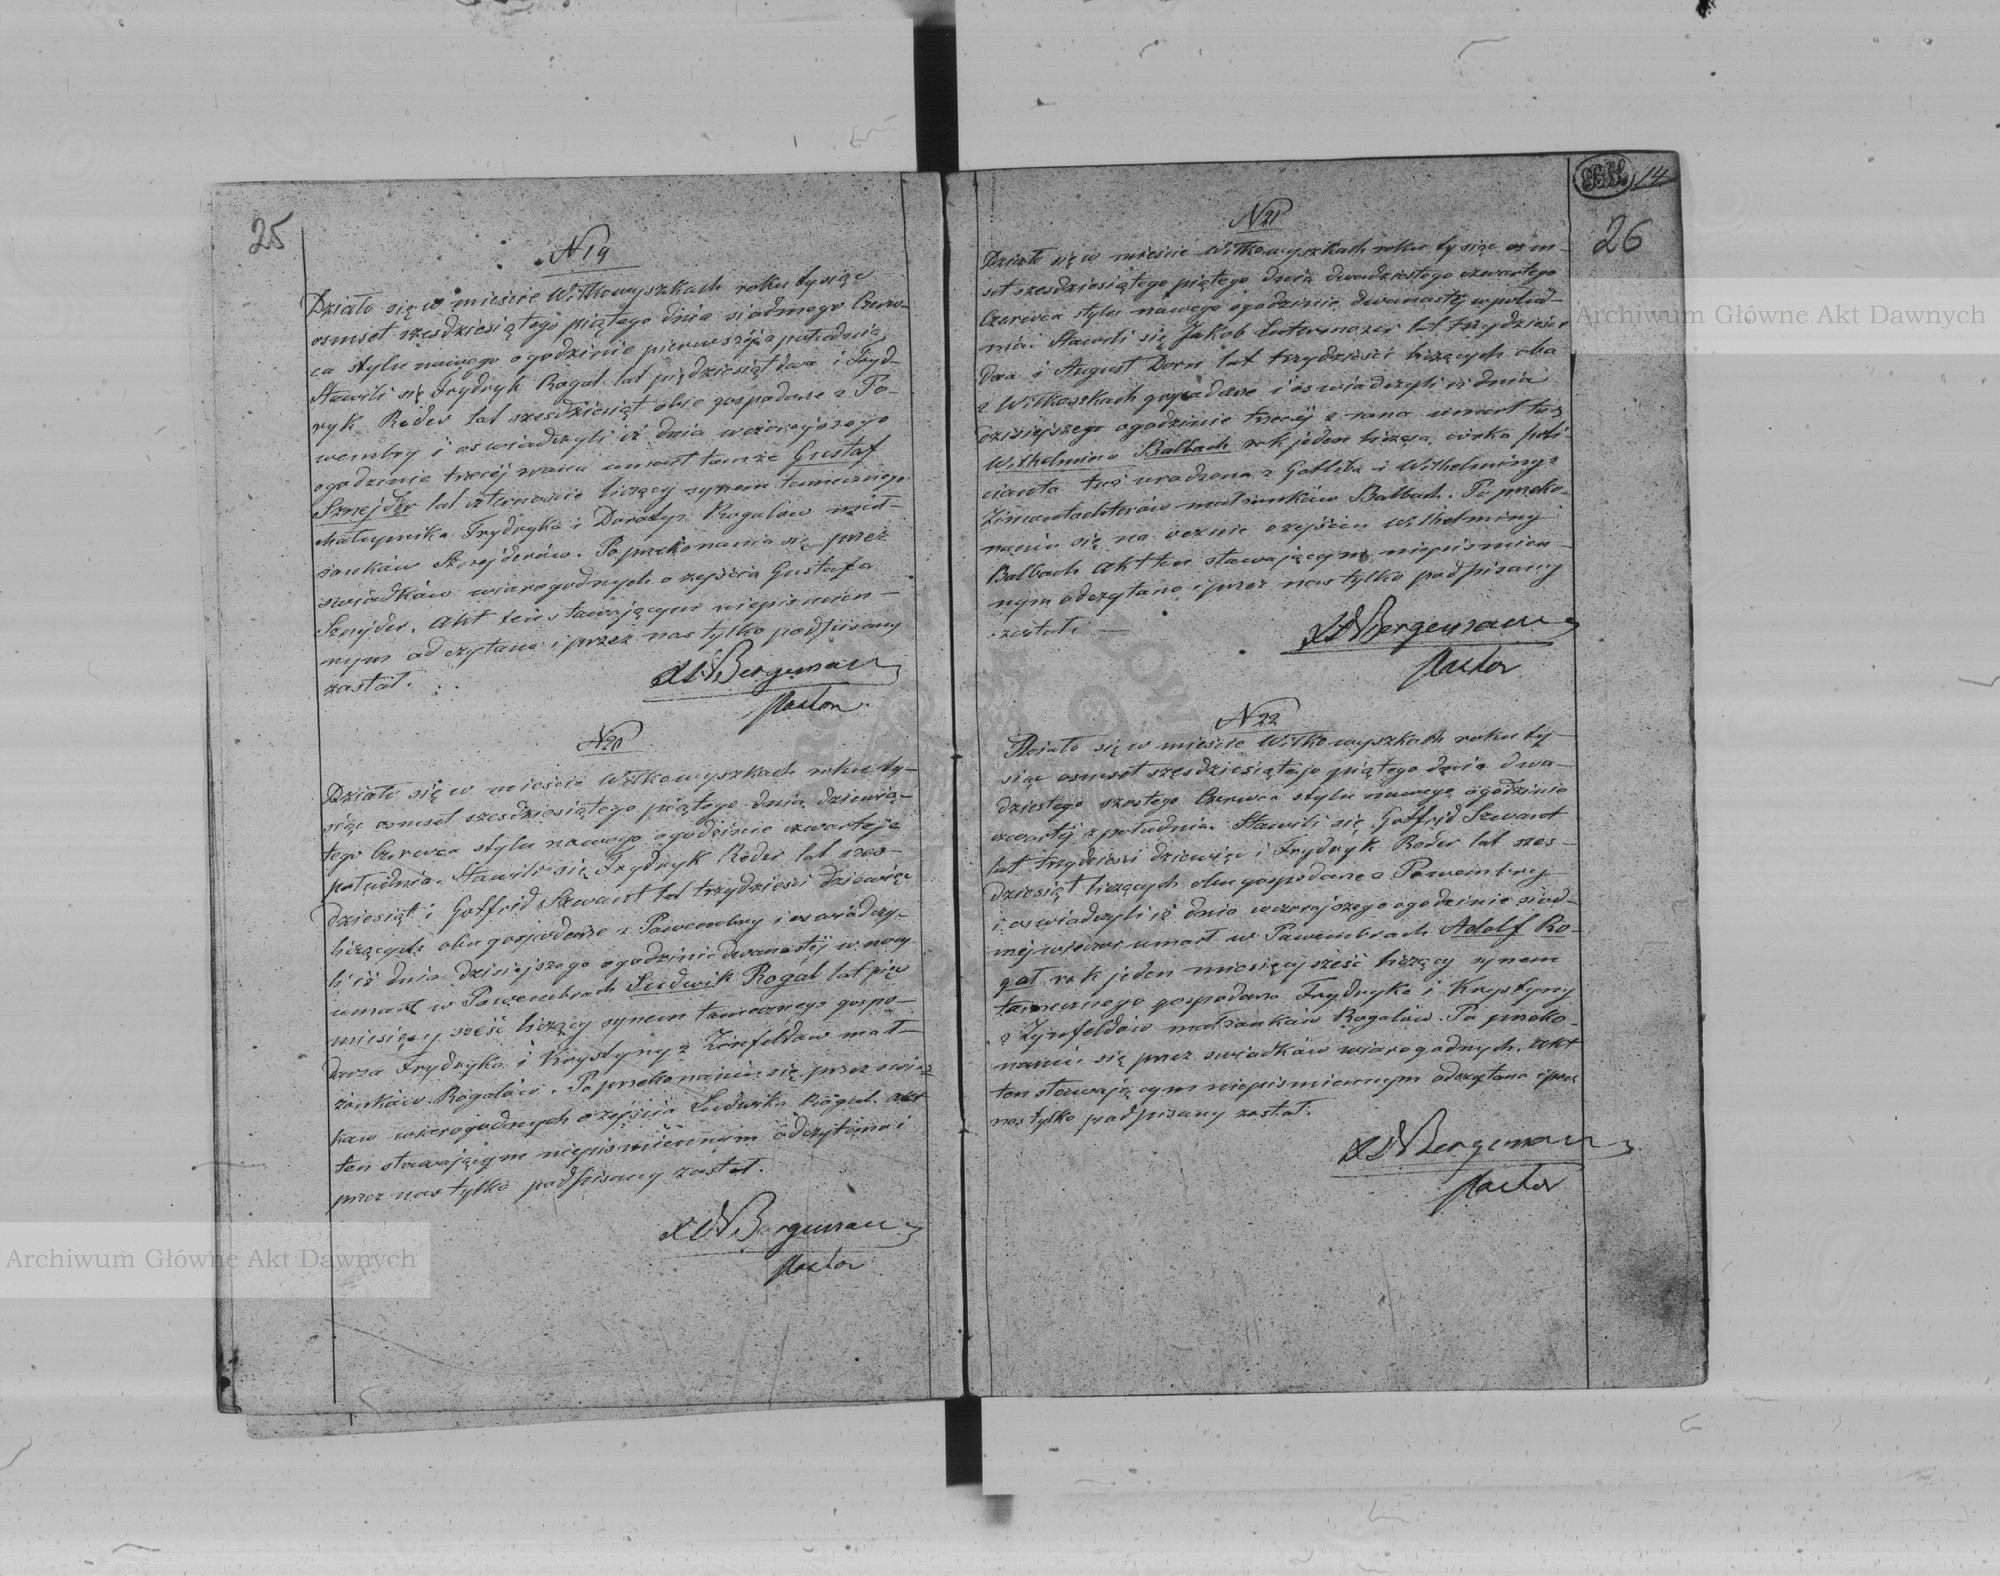 25
N 19
Działo się w mieście Wiłkowyszkach roku tysiąc
osmset szesdziesiątego piątego dnia siódmego Czerw-
ca stylu nowego o godzinie pierwszéj z południa
Stawili się Frydryk Rogal lat pięćdziesiąt dwa i Fryd-
ryk Reder lat szesdziesiąt obie gospodarze z Po-
wembry i oswiadczyli iż dnia wczorajszego
o godzinie trzeciéj z rana umarł tamże Gustaf
Sznejder lat czternaście liczący synem tamecznego
chałupnika Frydryka i Doroty z Rogalów mał-
żonków Sznejderów. Po przekonaniu się przez
swiadków wiarogodnych o zejściu Gustafa
Sznejder. Akt ten stawającym niepismien-
nym odczytano i przez nas tylko podpisany
został.
Bergeman
Pastor
N 20
Działo się w mieście Wiłkowyszkach roku ty-
siąc osmset szesdziesiątego piątego dnia dziewią-
tego Czerwca stylu nowego o godzinie czwartéj z
południa. Stawili się Frydryk Reder lat szes-
dziesiąt i Gotfrid Szwant lat trzydzieści dziewięć
liczących obu gospodarze z Powembry i oswiadczy-
li iż dnia dzisiejszego o godzinie dwunastéj w nocy
umarł w Powembrach Ludwik Rogal lat pięć
miesięcy sześć liczący synem tamecznego gospo-
darza Frydryka i Krystyny z mał-
żonków Rogalów. Po przekonaniu się przez swiad-
ków wiarogodnych o zejściu Ludwika Rogal. Akt
ten stawającym niepismiennym odczytano i
przez nas tylko podpisany został.
Bergeman
Pastor
14
26
N 21
Działo się w mieście Wiłkowyszkach roku tysiąc osm-
set szesdziesiątego piątego dnia dwudziestego czwartego
Czerwca stylu nowego o godzinie dwunastéj w połud-
nie. Stawili się Jakob lat trzydzieści
dwa i August Dorn lat trzydzieści liczących oba
z gospodarze i oswiadczyli iż dnia
dzisiejszego o godzinie trzeciéj z rana umarł tuż
Wilhelmina Balbach rok jeden licząca, córka poli-
cianta tuż urodzona z Gotliba i Wilhelminy z
małżonków Balbach. Po przeko-
naniu się na ocznie o zejściu Wilhelminy
Balbach Akt ten stawającym niepismien-
nym odczytano i przez nas tylko podpisany
został. —
Bergeman
Pastor
N 22
Działo się w mieście Wiłkowyszkach roku ty-
siąc osmset szesdziesiątego piątego dnia dwu-
dziestego szostego Czerwca stylu nowego o godzinie
czwartéj z południa. Stawili się Gotfrid Szwant
lat trzydzieści dziewięć i Frydryk Reder lat szes-
dziesiąt liczących obu gospodarze z Powembry
i oswiadczyli iż dnia wczorajszego o godzinie siód-
méj wieczor umarł w Powembrach Adolf Ro-
gal rok jeden miesięcy sześć liczący synem
tamecznego gospodarza Frydryka i Krystyny
z małżonków Rogalów. Po przeko-
naniu się przez swiadków wiarogodnych. Akt
ten stawającym niepismiennym odczytano i przez
nas tylko podpisany został.
Bergeman
Pastor
Archiwum Główne Akt Dawnych
Archiwum Główne Akt Dawnych